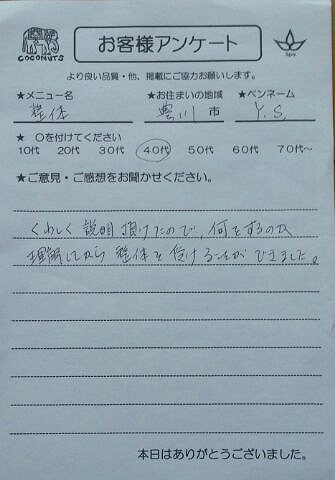 COCONUTS
お客様アンケート
より良い品質・他、掲載にご協力お願いします。
★メニュー名 ★お住まいの地域 ★ペンネーム
整体 豊川市 Y.S.
★ ○を付けてください
10代 20代 30代 40代 50代 60代 70代～
★ご意見・ご感想をお聞かせください。
くわしく説明頂けたので、何をするのか
理解してから整体を受けることができました。
本日はありがとうございました。